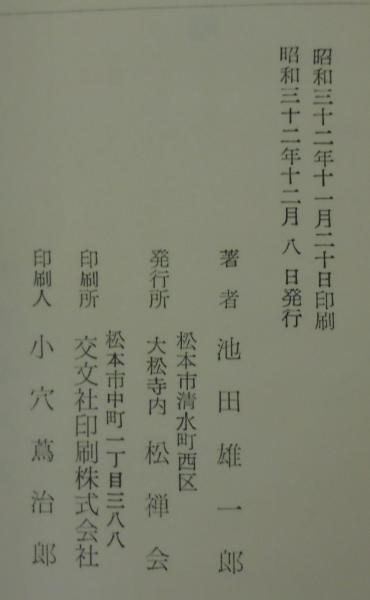 昭和三十二年十一月二十日印刷
昭和三十二年十二月八日発行
著者 池田雄一郎
松本市清水町西区
発行所 大松寺内 松禅会
松本市中町一丁目三八八
印刷所 交文社印刷株式会社
印刷人 小穴蔦治郎